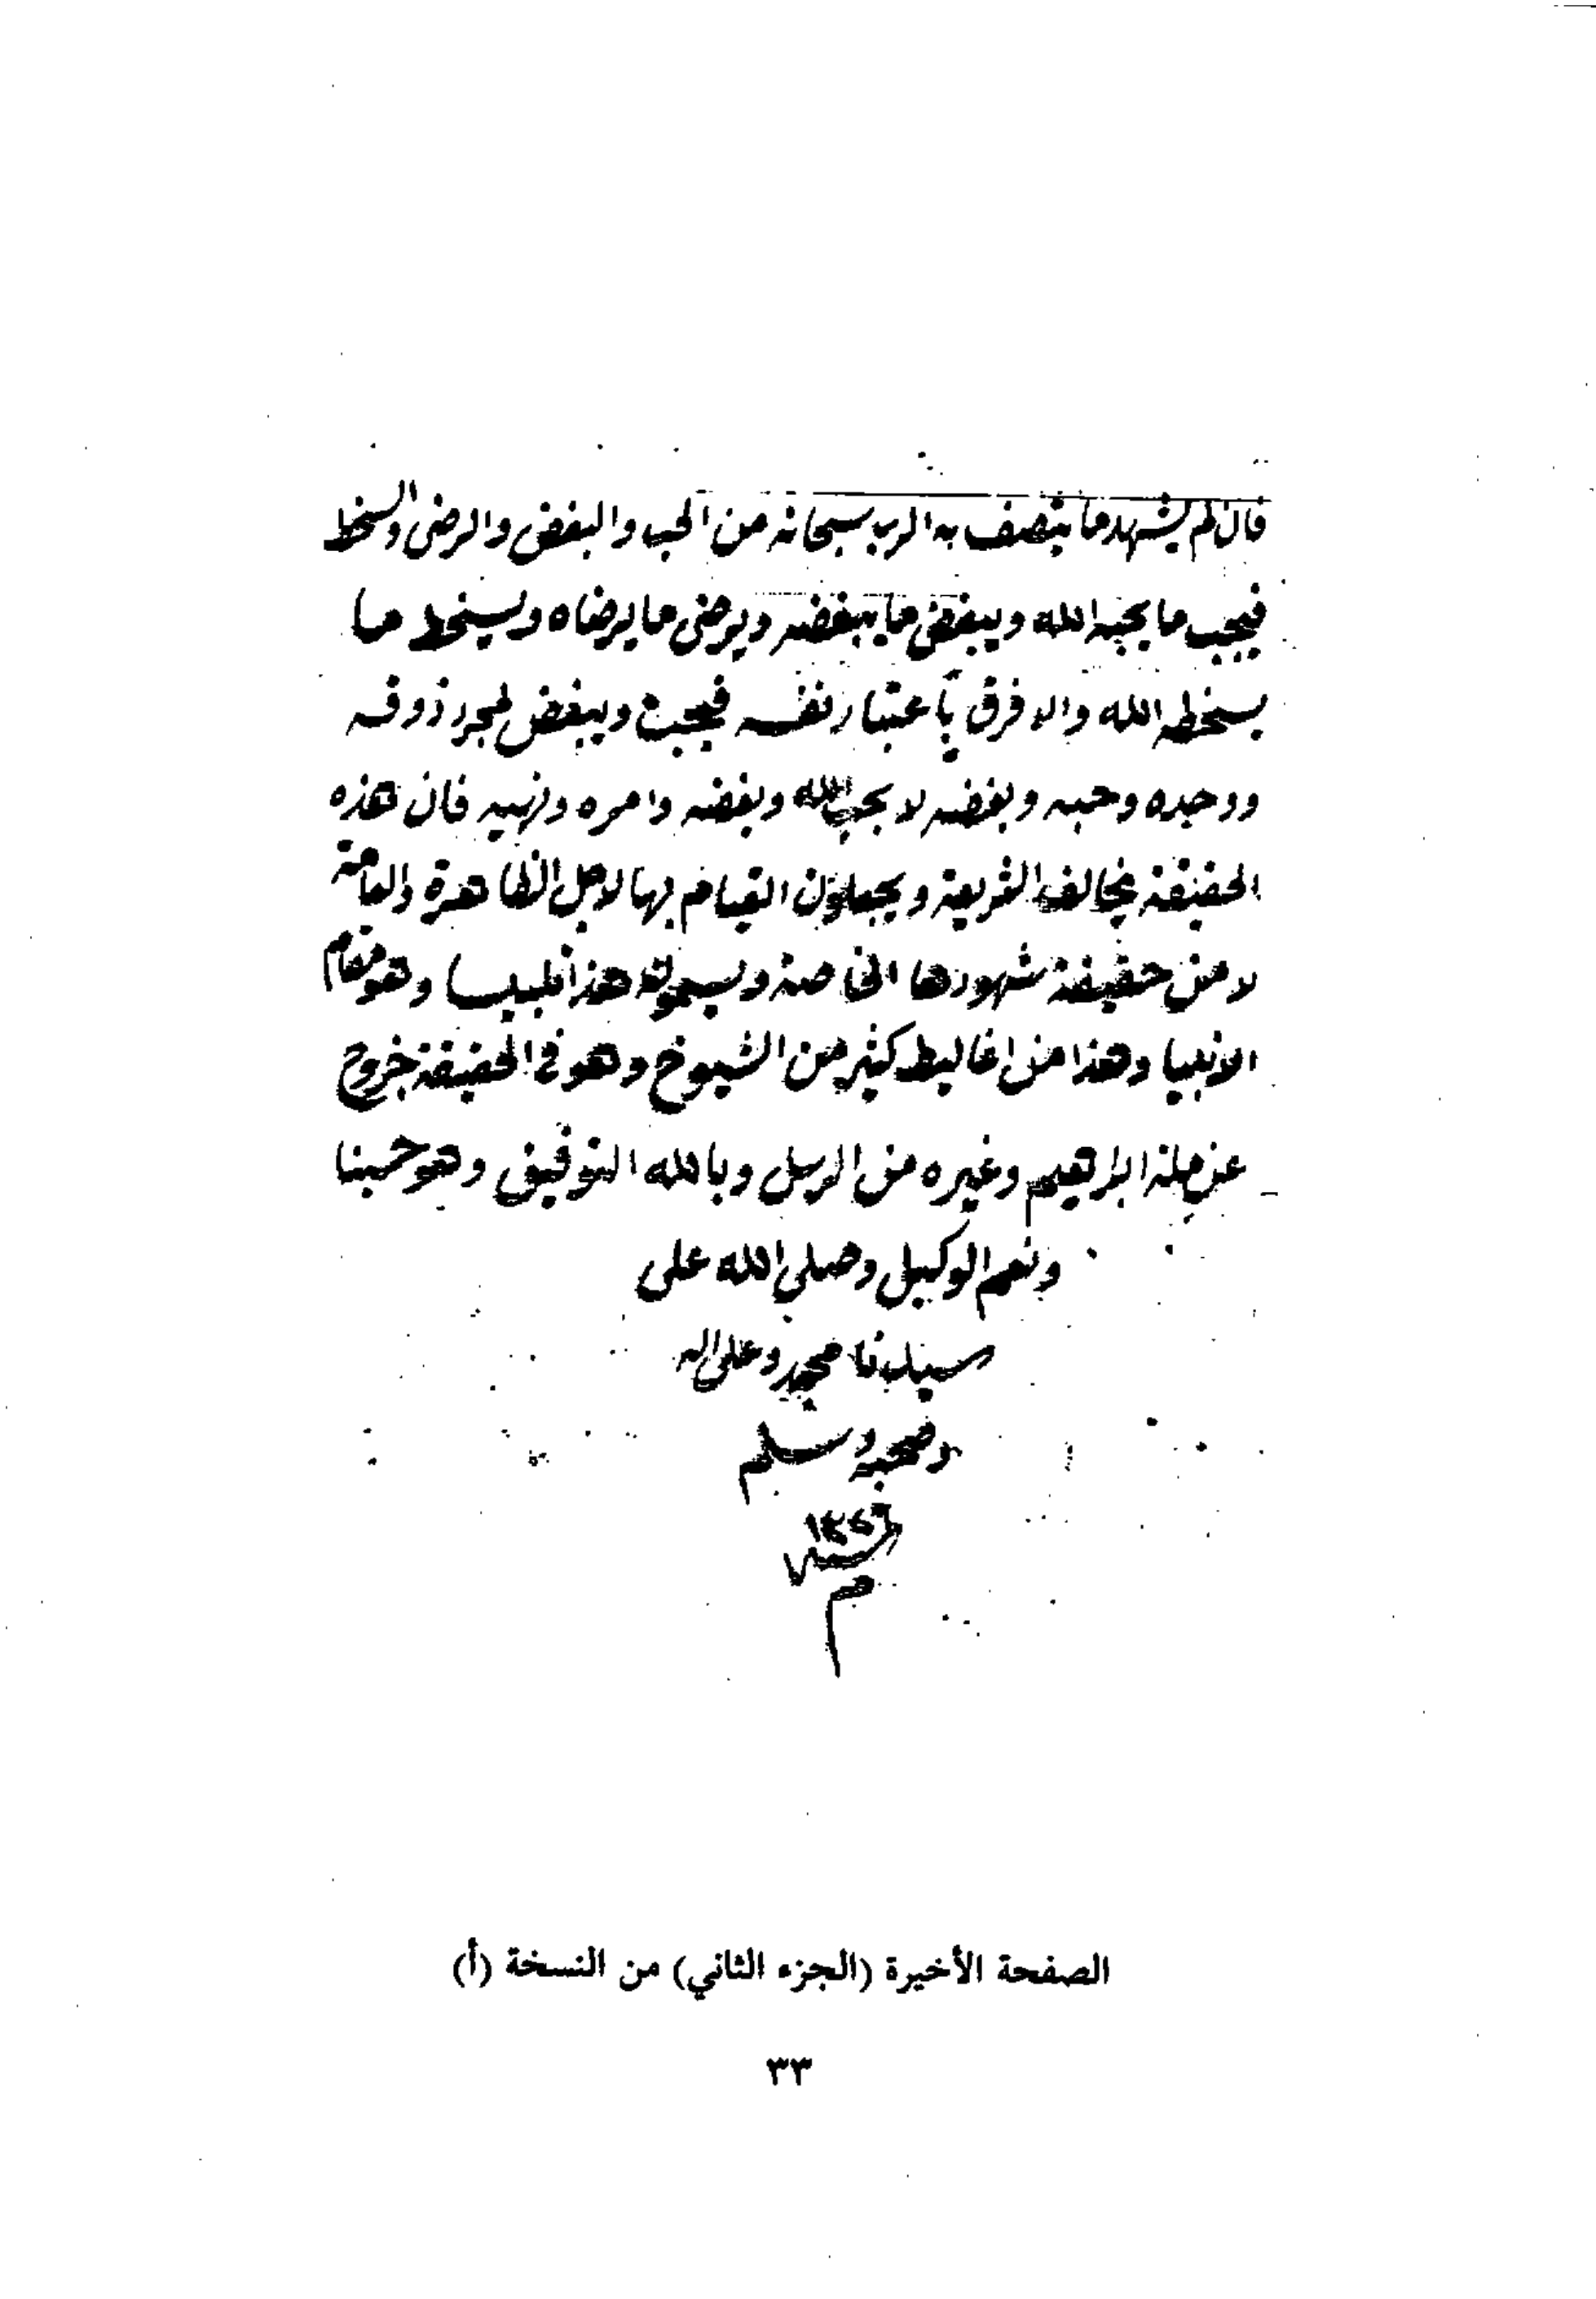 فان لم يشهد ما يتصف به الرب سبحانه من الحب والبغض والرضى والسخط
فيحب ما يحبه الله ويبغض ما يبغضه ويرضى ما يرضاه ويسخط ما
يسخطه الله والا فرق باعتبار نفسه فيحب ويبغض لمجرد ذوقه
ووجده وحبه وبغضه لا بحب الله وبغضه وامره ونهيه فان هذه
الحقيقة تخالف الشريعة ويجعلون القيام بها لاجل الظاهرة والعامة
لا من حقيقة شهودها الخاصة ويسمونه هذا تلبيسا وهو مقام
الانبيا وهذا من اغاليط كثير من الشيوخ وهو في الحقيقة خروج
عن ملة ابراهيم وغيره من الرسل وبالله التوفيق وهو حسبنا
ونعم الوكيل وصلى الله على
سيدنا محمد وعلى اله
وصحبه وسلم
م
الصفحة الأخيرة (الجزء الثاني) من النسخة (أ)
٣٣